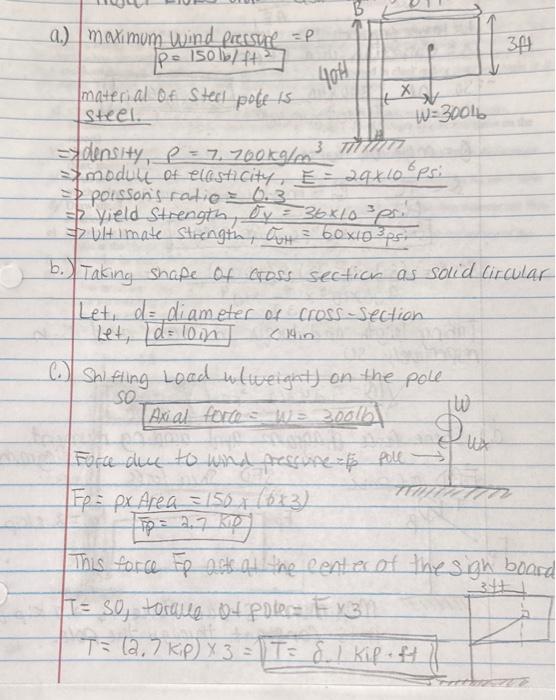 a.) maximum wind pressure = P
P = 150 lb/ft²
material of steel pole is
steel.
B
3ft
40ft
x
W=300lb
A
=> density, ρ = 7,700 kg/m³
=> module of elasticity, E = 29x10⁶ psi
=> poisson's ratio = 0.3
=> Yield Strength, σy = 36x10³ psi
=> Ultimate strength, σult = 60x10³ psi
b.) Taking shape of cross section as solid circular
Let, d = diameter of cross-section
Let, d=10in < 14in
C.) Shifting Load w(weight) on the pole
so
Axial force = W = 300lb
W
Wx
pole
Force due to wind pressure = Fp
Fp = P x Area = 150 x (6x3)
Fp = 2.7 kip
This force Fp acts at the center of the sign board
3ft
T = so, torque of pole = F x 3
T = (2.7 kip) x 3 = T = 8.1 kip·ft